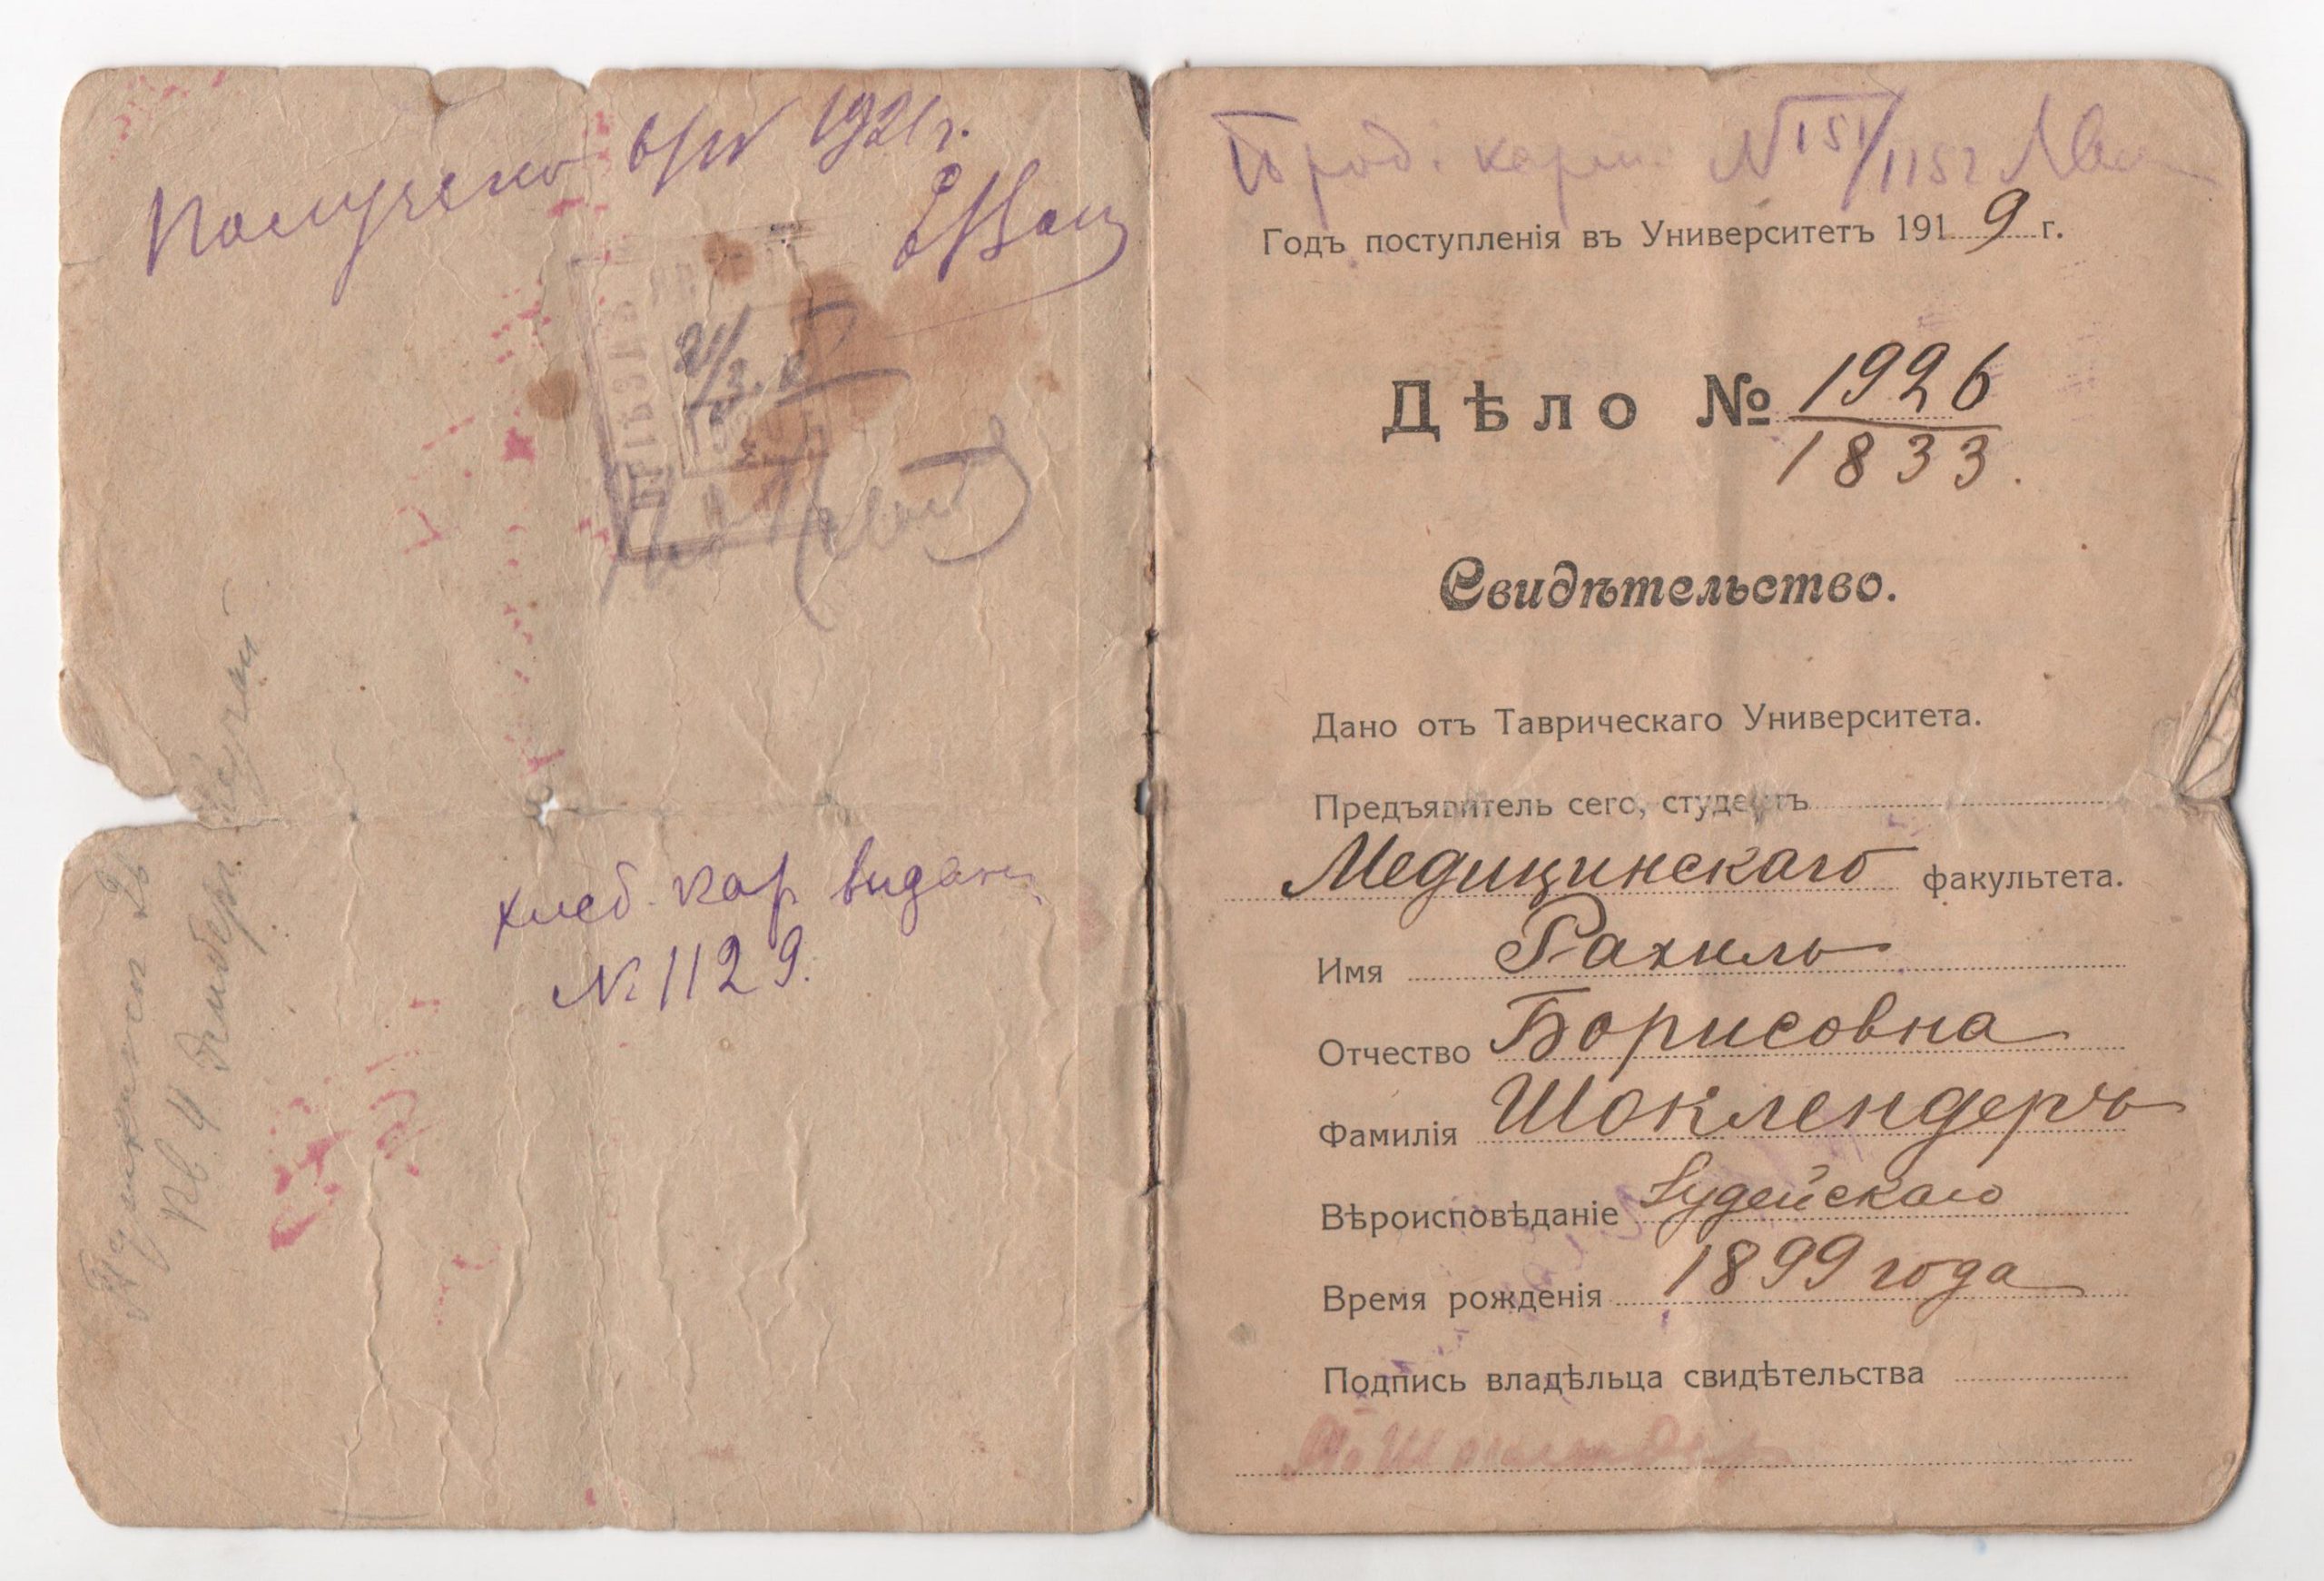 Получено 6/IV 1921 г.
хлеб. кар. выдана
№ 1129.
Пушкинск 26
кв. 4
Прод. карт. № 151/1152
Годъ поступленія въ Университетъ 1919 г.
Дѣло № 1926
1833.
Свидѣтельство.
Дано отъ Таврическаго Университета.
Предъявитель сего, студентъ
Медицинскаго факультета.
Имя Рахиль
Отчество Борисовна
Фамилія Шоклендеръ
Вѣроисповѣданіе Іудейскаго
Время рожденія 1899 года
Подпись владѣльца свидѣтельства